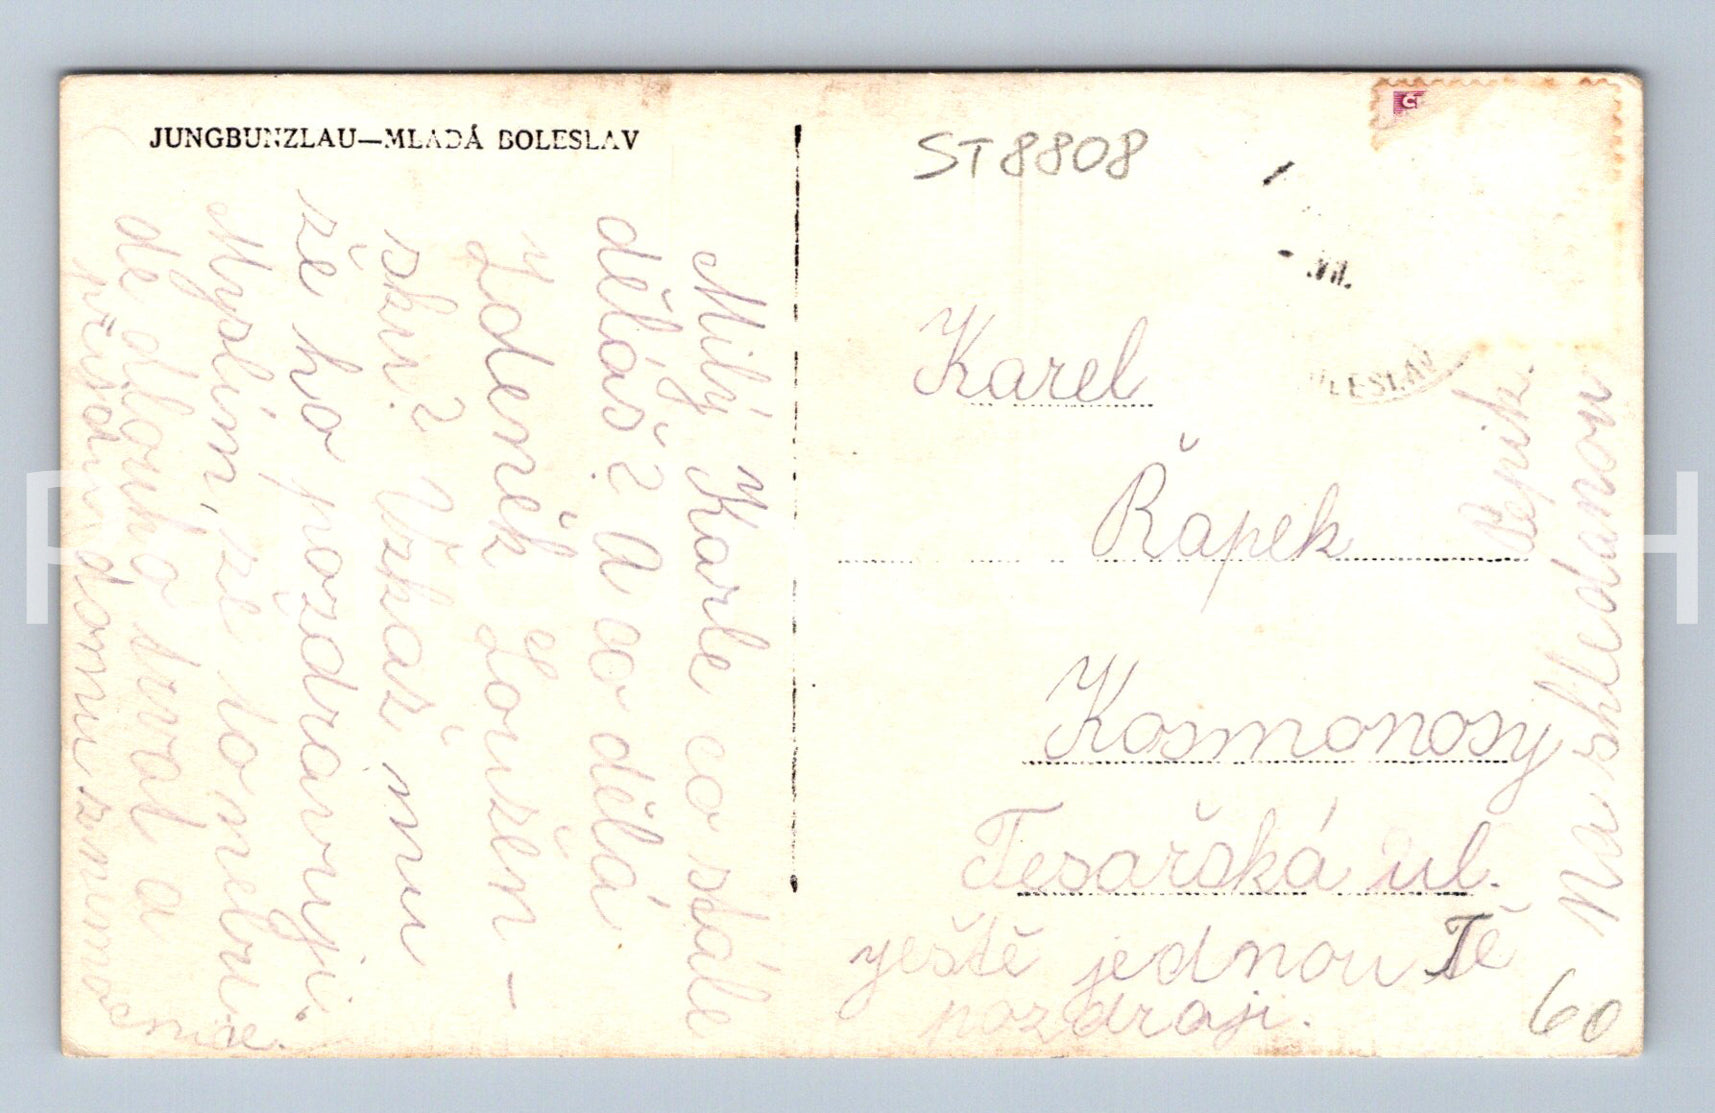 JUNGBUNZLAU—MLADÁ BOLESLAV
Milý Karle co stále
děláš? A co dělá
Zdeněk Loužen-
ský? Vzkaž mu
že ho pozdravuji.
Myslím, že to nebu-
de dlouho trvat a
přijdu domu z nemo
cnice.
ST8808
VII.
OLESLAV
Č
Karel
Řapek
Kosmonosy
Tesařská ul.
ještě jednou Tě
pozdraji.
Na shledanou
Pepík.
60